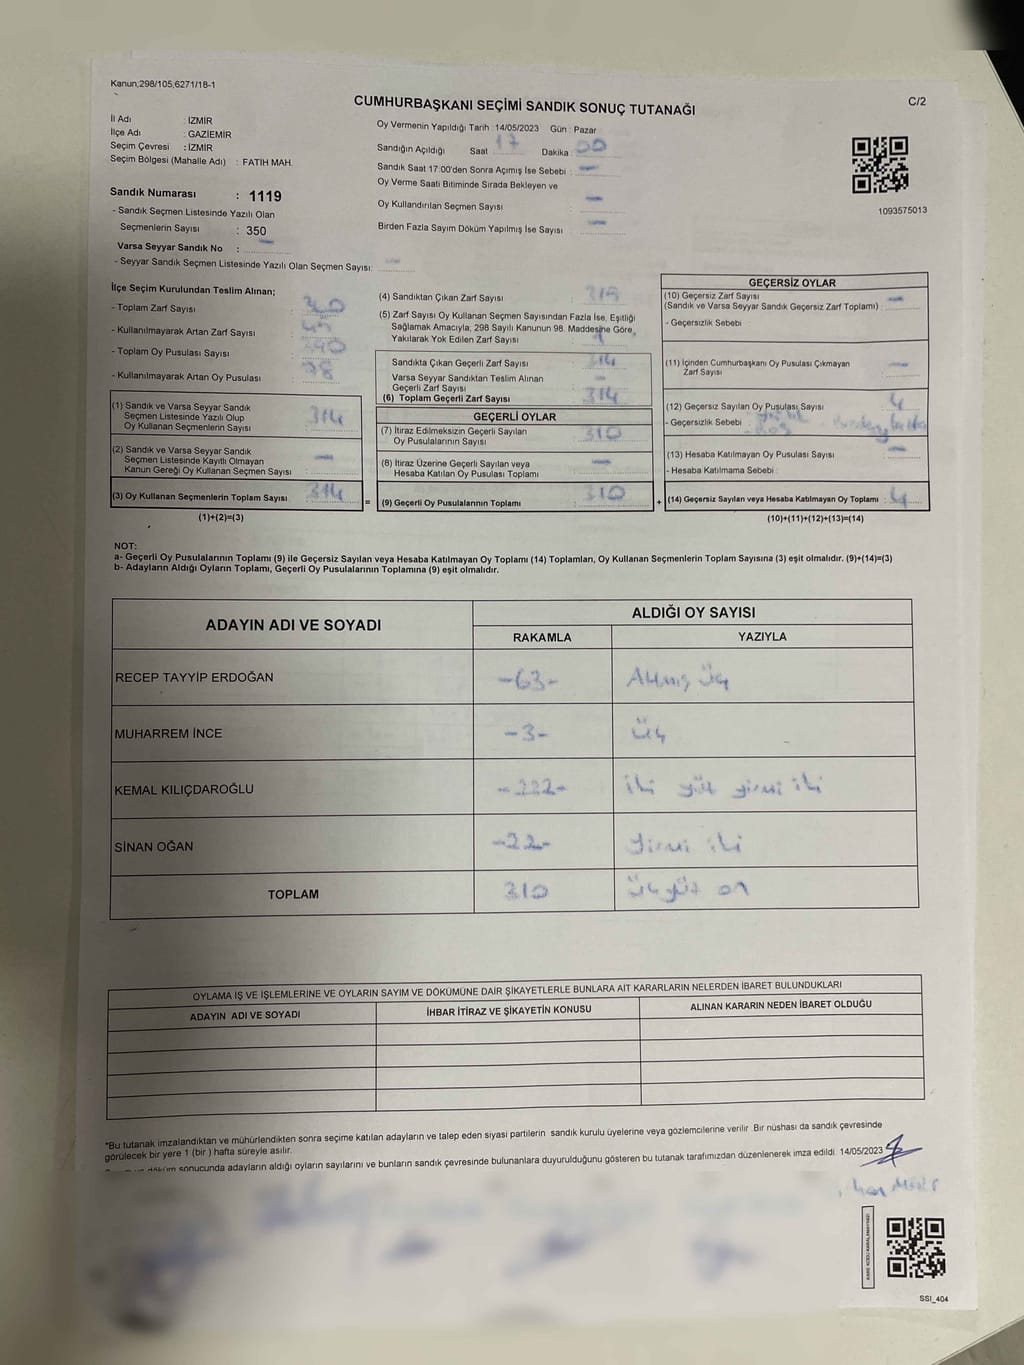 Kanun;298/105,6271/18-1
CUMHURBAŞKANI SEÇİMİ SANDIK SONUÇ TUTANAĞI
C/2
İl Adı : İZMİR
İlçe Adı : GAZİEMİR
Seçim Çevresi : İZMİR
Seçim Bölgesi (Mahalle Adı) : FATİH MAH.
Sandık Numarası : 1119
- Sandık Seçmen Listesinde Yazılı Olan
Seçmenlerin Sayısı : 350
Varsa Seyyar Sandık No : —
- Seyyar Sandık Seçmen Listesinde Yazılı Olan Seçmen Sayısı: —
Oy Vermenin Yapıldığı Tarih : 14/05/2023 Gün : Pazar
Sandığın Açıldığı Saat 17 Dakika : 00
Sandık Saat 17:00'den Sonra Açımış İse Sebebi : —
Oy Verme Saati Bitiminde Sırada Bekleyen ve
Oy Kullandırılan Seçmen Sayısı : —
Birden Fazla Sayım Döküm Yapılmış İse Sayısı : —
1093575013
İlçe Seçim Kurulundan Teslim Alınan;
- Toplam Zarf Sayısı :
- Kullanılmayarak Artan Zarf Sayısı :
- Toplam Oy Pusulası Sayısı :
- Kullanılmayarak Artan Oy Pusulası :
(1) Sandık ve Varsa Seyyar Sandık
Seçmen Listesinde Yazılı Olup
Oy Kullanan Seçmenlerin Sayısı : 314
(2) Sandık ve Varsa Seyyar Sandık
Seçmen Listesinde Kayıtlı Olmayan
Kanun Gereği Oy Kullanan Seçmen Sayısı : —
(3) Oy Kullanan Seçmenlerin Toplam Sayısı : 314
(1)+(2)=(3)
(4) Sandıktan Çıkan Zarf Sayısı :
(5) Zarf Sayısı Oy Kullanan Seçmen Sayısından Fazla İse, Eşitliği
Sağlamak Amacıyla, 298 Sayılı Kanunun 98. Maddesine Göre
Yakılarak Yok Edilen Zarf Sayısı :
Sandıkta Çıkan Geçerli Zarf Sayısı : 314
Varsa Seyyar Sandıktan Teslim Alınan
Geçerli Zarf Sayısı : —
(6) Toplam Geçerli Zarf Sayısı : 314
GEÇERLİ OYLAR
(7) İtiraz Edilmeksizin Geçerli Sayılan
Oy Pusulalarının Sayısı : 310
(8) İtiraz Üzerine Geçerli Sayılan veya
Hesaba Katılan Oy Pusulası Toplamı : —
= (9) Geçerli Oy Pusulalarının Toplamı : 310 +
GEÇERSİZ OYLAR
(10) Geçersiz Zarf Sayısı
(Sandık ve Varsa Seyyar Sandık Geçersiz Zarf Toplamı) : —
- Geçersizlik Sebebi :
(11) İçinden Cumhurbaşkanı Oy Pusulası Çıkmayan
Zarf Sayısı : —
(12) Geçersiz Sayılan Oy Pusulası Sayısı : 4
- Geçersizlik Sebebi :
(13) Hesaba Katılmayan Oy Pusulası Sayısı : —
- Hesaba Katılmama Sebebi :
(14) Geçersiz Sayılan veya Hesaba Katılmayan Oy Toplamı : 4
(10)+(11)+(12)+(13)=(14)
NOT:
a- Geçerli Oy Pusulalarının Toplamı (9) ile Geçersiz Sayılan veya Hesaba Katılmayan Oy Toplamı (14) Toplamları, Oy Kullanan Seçmenlerin Toplam Sayısına (3) eşit olmalıdır. (9)+(14)=(3)
b- Adayların Aldığı Oyların Toplamı, Geçerli Oy Pusulalarının Toplamına (9) eşit olmalıdır.
ADAYIN ADI VE SOYADI
ALDIĞI OY SAYISI
RAKAMLA YAZIYLA
RECEP TAYYİP ERDOĞAN -63- Altmış Üç
MUHARREM İNCE -3- Üç
KEMAL KILIÇDAROĞLU -222- iki yüz yirmi iki
SİNAN OĞAN -22- yirmi iki
TOPLAM 310 Üçyüz on
OYLAMA İŞ VE İŞLEMLERİNE VE OYLARIN SAYIM VE DÖKÜMÜNE DAİR ŞİKAYETLERLE BUNLARA AİT KARARLARIN NELERDEN İBARET BULUNDUKLARI
ADAYIN ADI VE SOYADI İHBAR İTİRAZ VE ŞİKAYETİN KONUSU ALINAN KARARIN NEDEN İBARET OLDUĞU
*Bu tutanak imzalandıktan ve mühürlendikten sonra seçime katılan adayların ve talep eden siyasi partilerin sandık kurulu üyelerine veya gözlemcilerine verilir. Bir nüshası da sandık çevresinde
görülecek bir yere 1 (bir ) hafta süreyle asılır.
döküm sonucunda adayların aldığı oyların sayılarını ve bunların sandık çevresinde bulunanlara duyurulduğunu gösteren bu tutanak tarafımızdan düzenlenerek imza edildi. 14/05/2023
SSI_404